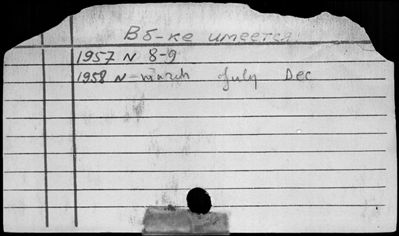 В б-ке имеется:
1957 N 8-9
1958 N march July Dec